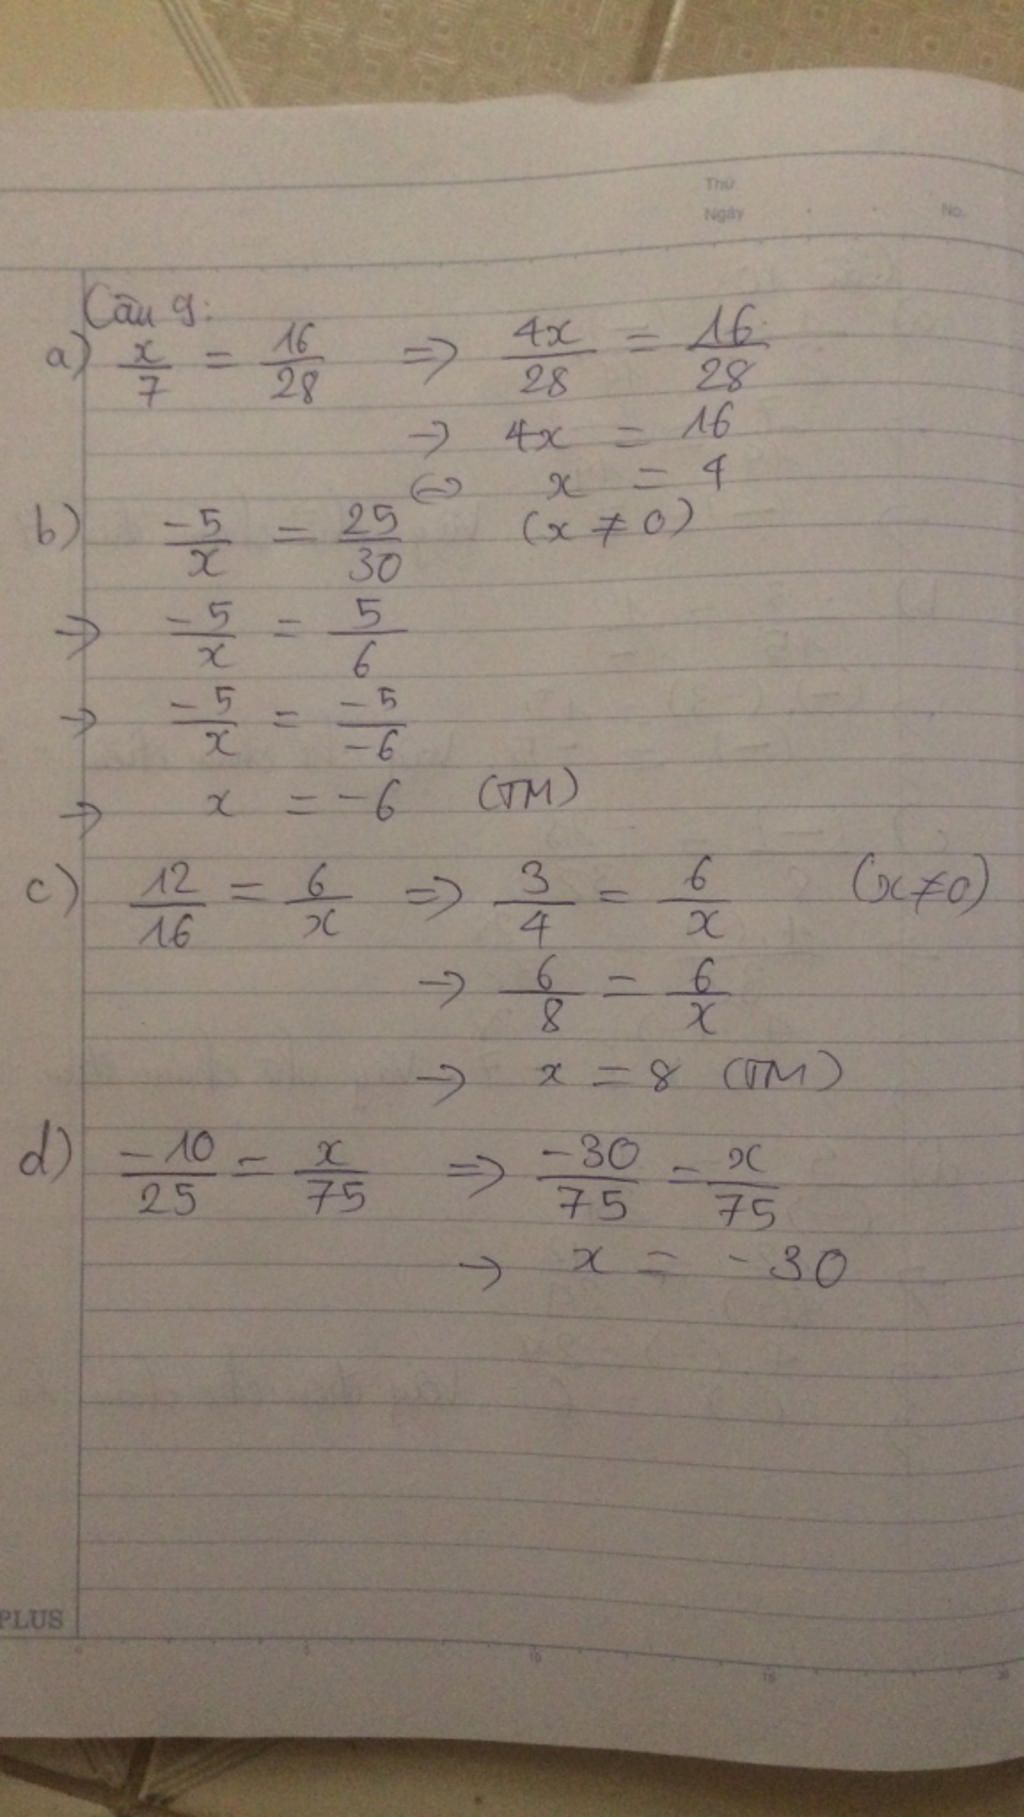 Thứ
Ngày . . No.
Câu 9:
a) x/7 = 16/28 => 4x/28 = 16/28
-> 4x = 16
<=> x = 4
b) -5/x = 25/30 (x ≠ 0)
=> -5/x = 5/6
-> -5/x = -5/-6
-> x = -6 (TM)
c) 12/16 = 6/x => 3/4 = 6/x (x ≠ 0)
-> 6/8 = 6/x
-> x = 8 (TM)
d) -10/25 = x/75 => -30/75 = x/75
-> x = -30
PLUS
0 5 10 15 20